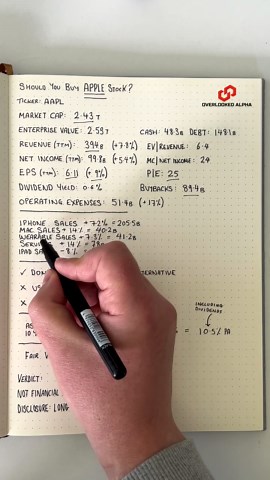 SHOULD YOU BUY APPLE STOCK?
OVERLOOKED ALPHA
TICKER: AAPL
MARKET CAP: 2.43T
ENTERPRISE VALUE: 2.53T CASH: 48.3B DEBT: 148.1B
REVENUE (TTM): 394B (+7.8%) EV/REVENUE: 6.4
NET INCOME (TTM): 99.8B (+5.4%) MC/NET INCOME: 24
EPS (TTM): 6.11 (+9%) P/E: 25
DIVIDEND YIELD: 0.6% BUYBACKS: 89.4B
OPERATING EXPENSES: 51.4B (+17%)
IPHONE SALES +7.2% = 205.5B
MAC SALES + 14% = 40.2B
WEARABLE SALES + 7.3% = 41.2B
+ 14% =
IPAD -8%
✓
X
X
INCLUDING
DIVIDENDS
= 10.5% PA
VERDICT:
NOT FINANCIAL
DISCLOSURE: LONG